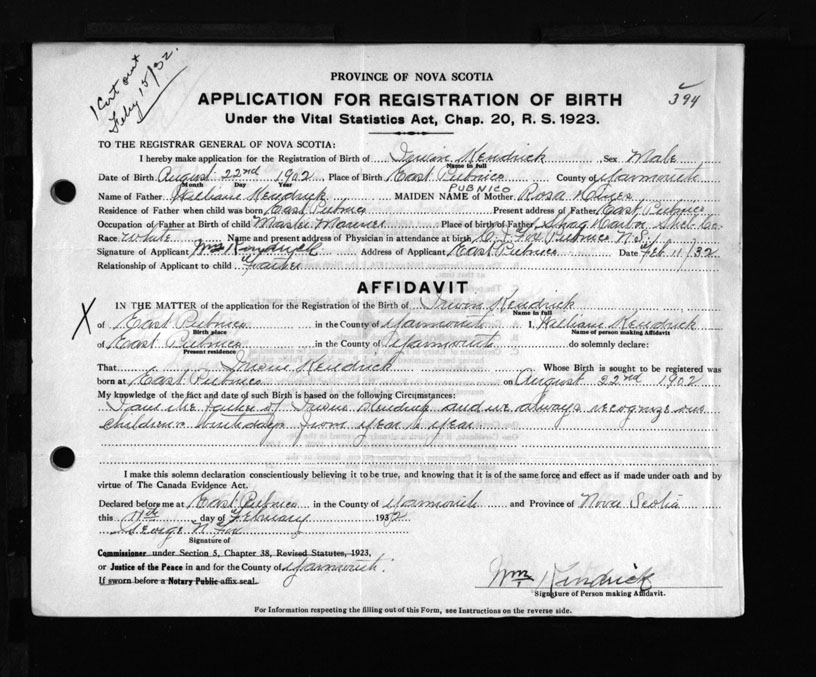 1 Cert out
Feby 15/32.
394
PROVINCE OF NOVA SCOTIA
APPLICATION FOR REGISTRATION OF BIRTH
Under the Vital Statistics Act, Chap. 20, R. S. 1923.
TO THE REGISTRAR GENERAL OF NOVA SCOTIA:
I hereby make application for the Registration of Birth of Irvin Kendrick Sex Male
Name in full
Date of Birth August 22nd 1902 Place of Birth East Pubnico County of Yarmouth
Month Day Year PUBNICO
Name of Father William Kendrick MAIDEN NAME of Mother Rosa
Residence of Father when child was born East Pubnico Present address of Father East Pubnico
Occupation of Father at Birth of child Master Mariner Place of birth of Father Shag Harbor Shel. Co.
Race White Name and present address of Physician in attendance at birth Pubnico N.S.
Signature of Applicant Wm Kendrick Address of Applicant East Pubnico Date Feb 11/32
Relationship of Applicant to child Father
AFFIDAVIT
X IN THE MATTER of the application for the Registration of the Birth of Irvin Kendrick
Name in full
of East Pubnico in the County of Yarmouth I, William Kendrick
Birth place Name of person making Affidavit
of East Pubnico in the County of Yarmouth do solemnly declare:
Present residence
That Kendrick Whose Birth is sought to be registered was
born at East Pubnico on August 22nd 1902
My knowledge of the fact and date of such Birth is based on the following Circumstances:
I am the father of Kendrick and we always recognize our
children's birthdays from year to year.
I make this solemn declaration conscientiously believing it to be true, and knowing that it is of the same force and effect as if made under oath and by
virtue of The Canada Evidence Act.
Declared before me at East Pubnico in the County of Yarmouth and Province of Nova Scotia
this 11th day of February 1932
George N. Fox
Signature of
Commissioner under Section 5, Chapter 38, Revised Statutes, 1923,
or Justice of the Peace in and for the County of Yarmouth.
If sworn before a Notary Public affix seal.
Wm Kendrick
Signature of Person making Affidavit.
For Information respecting the filling out of this Form, see Instructions on the reverse side.